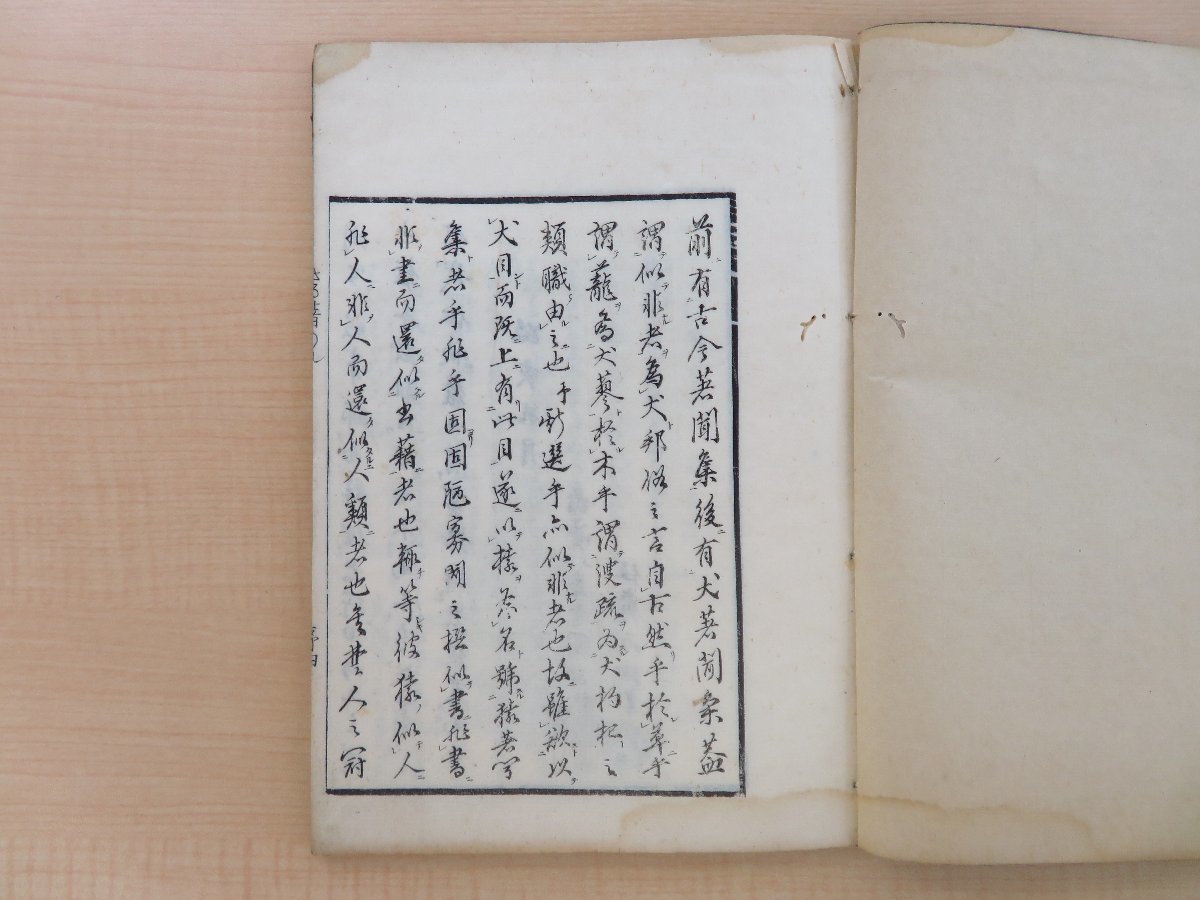 前有古今著聞集後有犬著聞集蓋
謂似非者為犬邦俗之言自古然乎於草乎
謂蘢為犬蓼於木乎謂溲疏為犬枸杞之
類職由之也予新選乎亦似非者也故雖欲以
犬目而既上有此目遂以猿名號猿著聞
集者乎非乎固固陋寡聞之撰似書非書
非書而還似書籍者也輙等彼猿似人
非人非人而還似人類者也楚人之冠